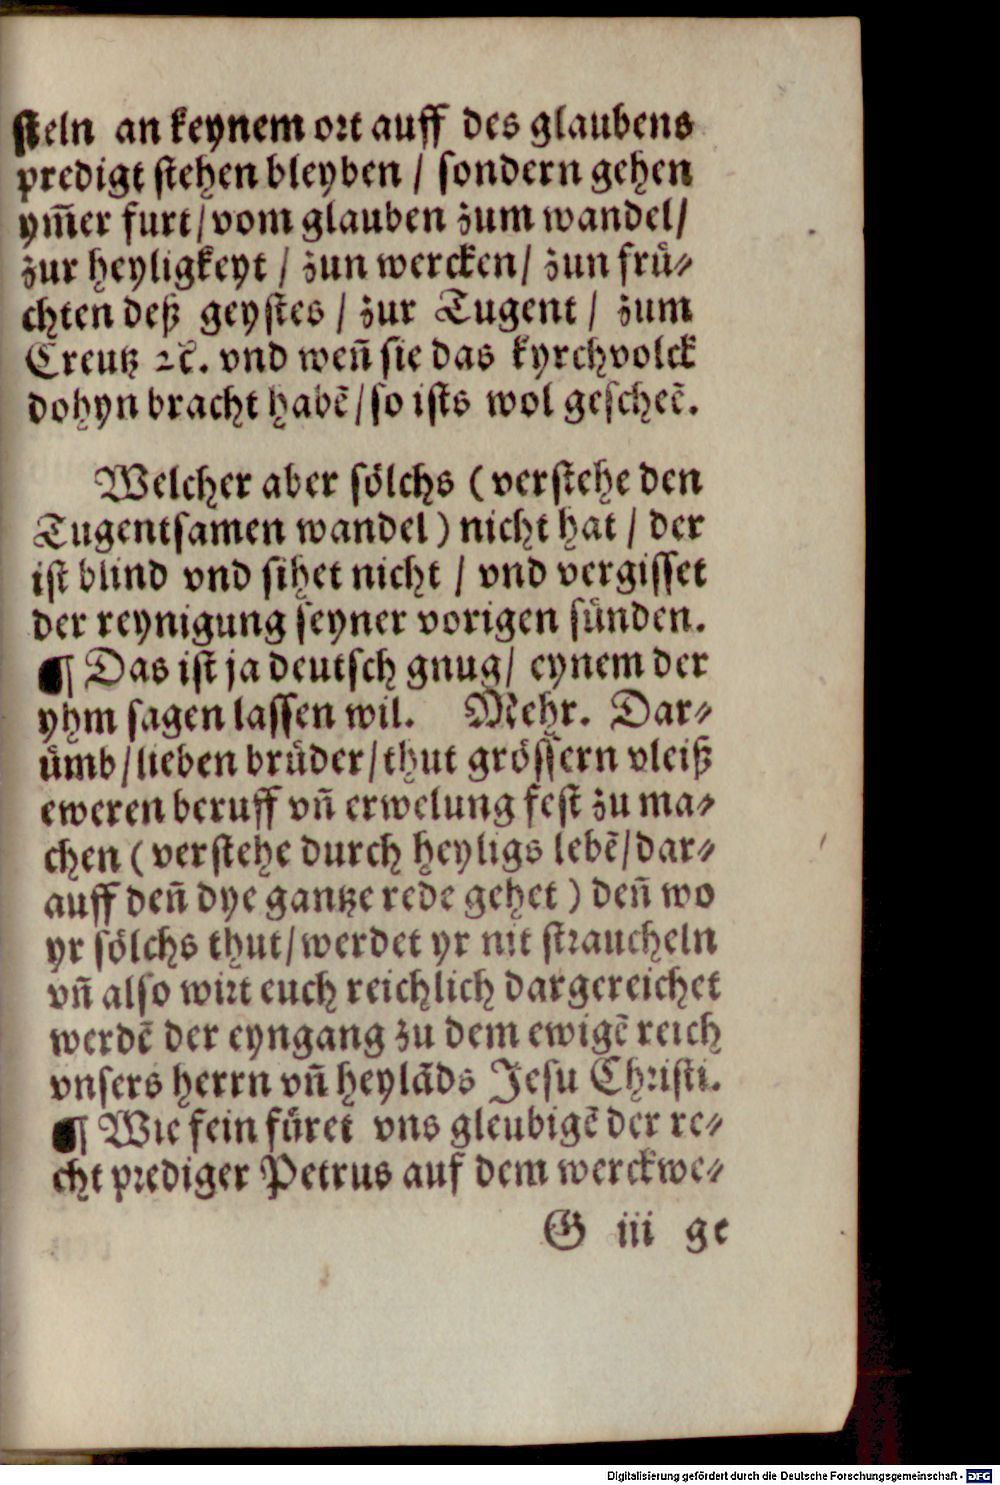 steln an keynem ort auff des glaubens
predigt stehen bleyben / sondern gehen
ym̃er furt / vom glauben zum wandel /
zur heyligkeyt / zun wercken / zun frů⸗
chten deß geystes / zur Tugent / zum
Creutz ⁊c̃. vnd weñ sie das kyrchvolck
dohyn bracht habẽ / so ists wol gescheẽ.
Welcher aber sölchs ( verstehe den
Tugentsamen wandel ) nicht hat / der
ist blind vnd sihet nicht / vnd vergisset
der reynigung seyner vorigen sünden.
¶ Das ist ja deutsch gnug / eynem der
yhm sagen lassen wil. Mehr. Dar⸗
ümb / lieben brůder / thut grössern vleiß
eweren beruff vñ erwelung fest zu ma⸗
chen ( verstehe durch heyligs lebẽ / dar⸗
auff deñ dye gantze rede gehet ) deñ wo
yr sölchs thut / werdet yr nit straucheln
vñ also wirt euch reichlich dargereichet
werdẽ der eyngang zu dem ewigẽ reich
vnsers herrn vñ heylãds Jesu Christi.
¶ Wie fein füret vns gleubigẽ der re⸗
cht prediger Petrus auf dem werckwe⸗
G iii ge
Digitalisierung gefördert durch die Deutsche Forschungsgemeinschaft - DFG